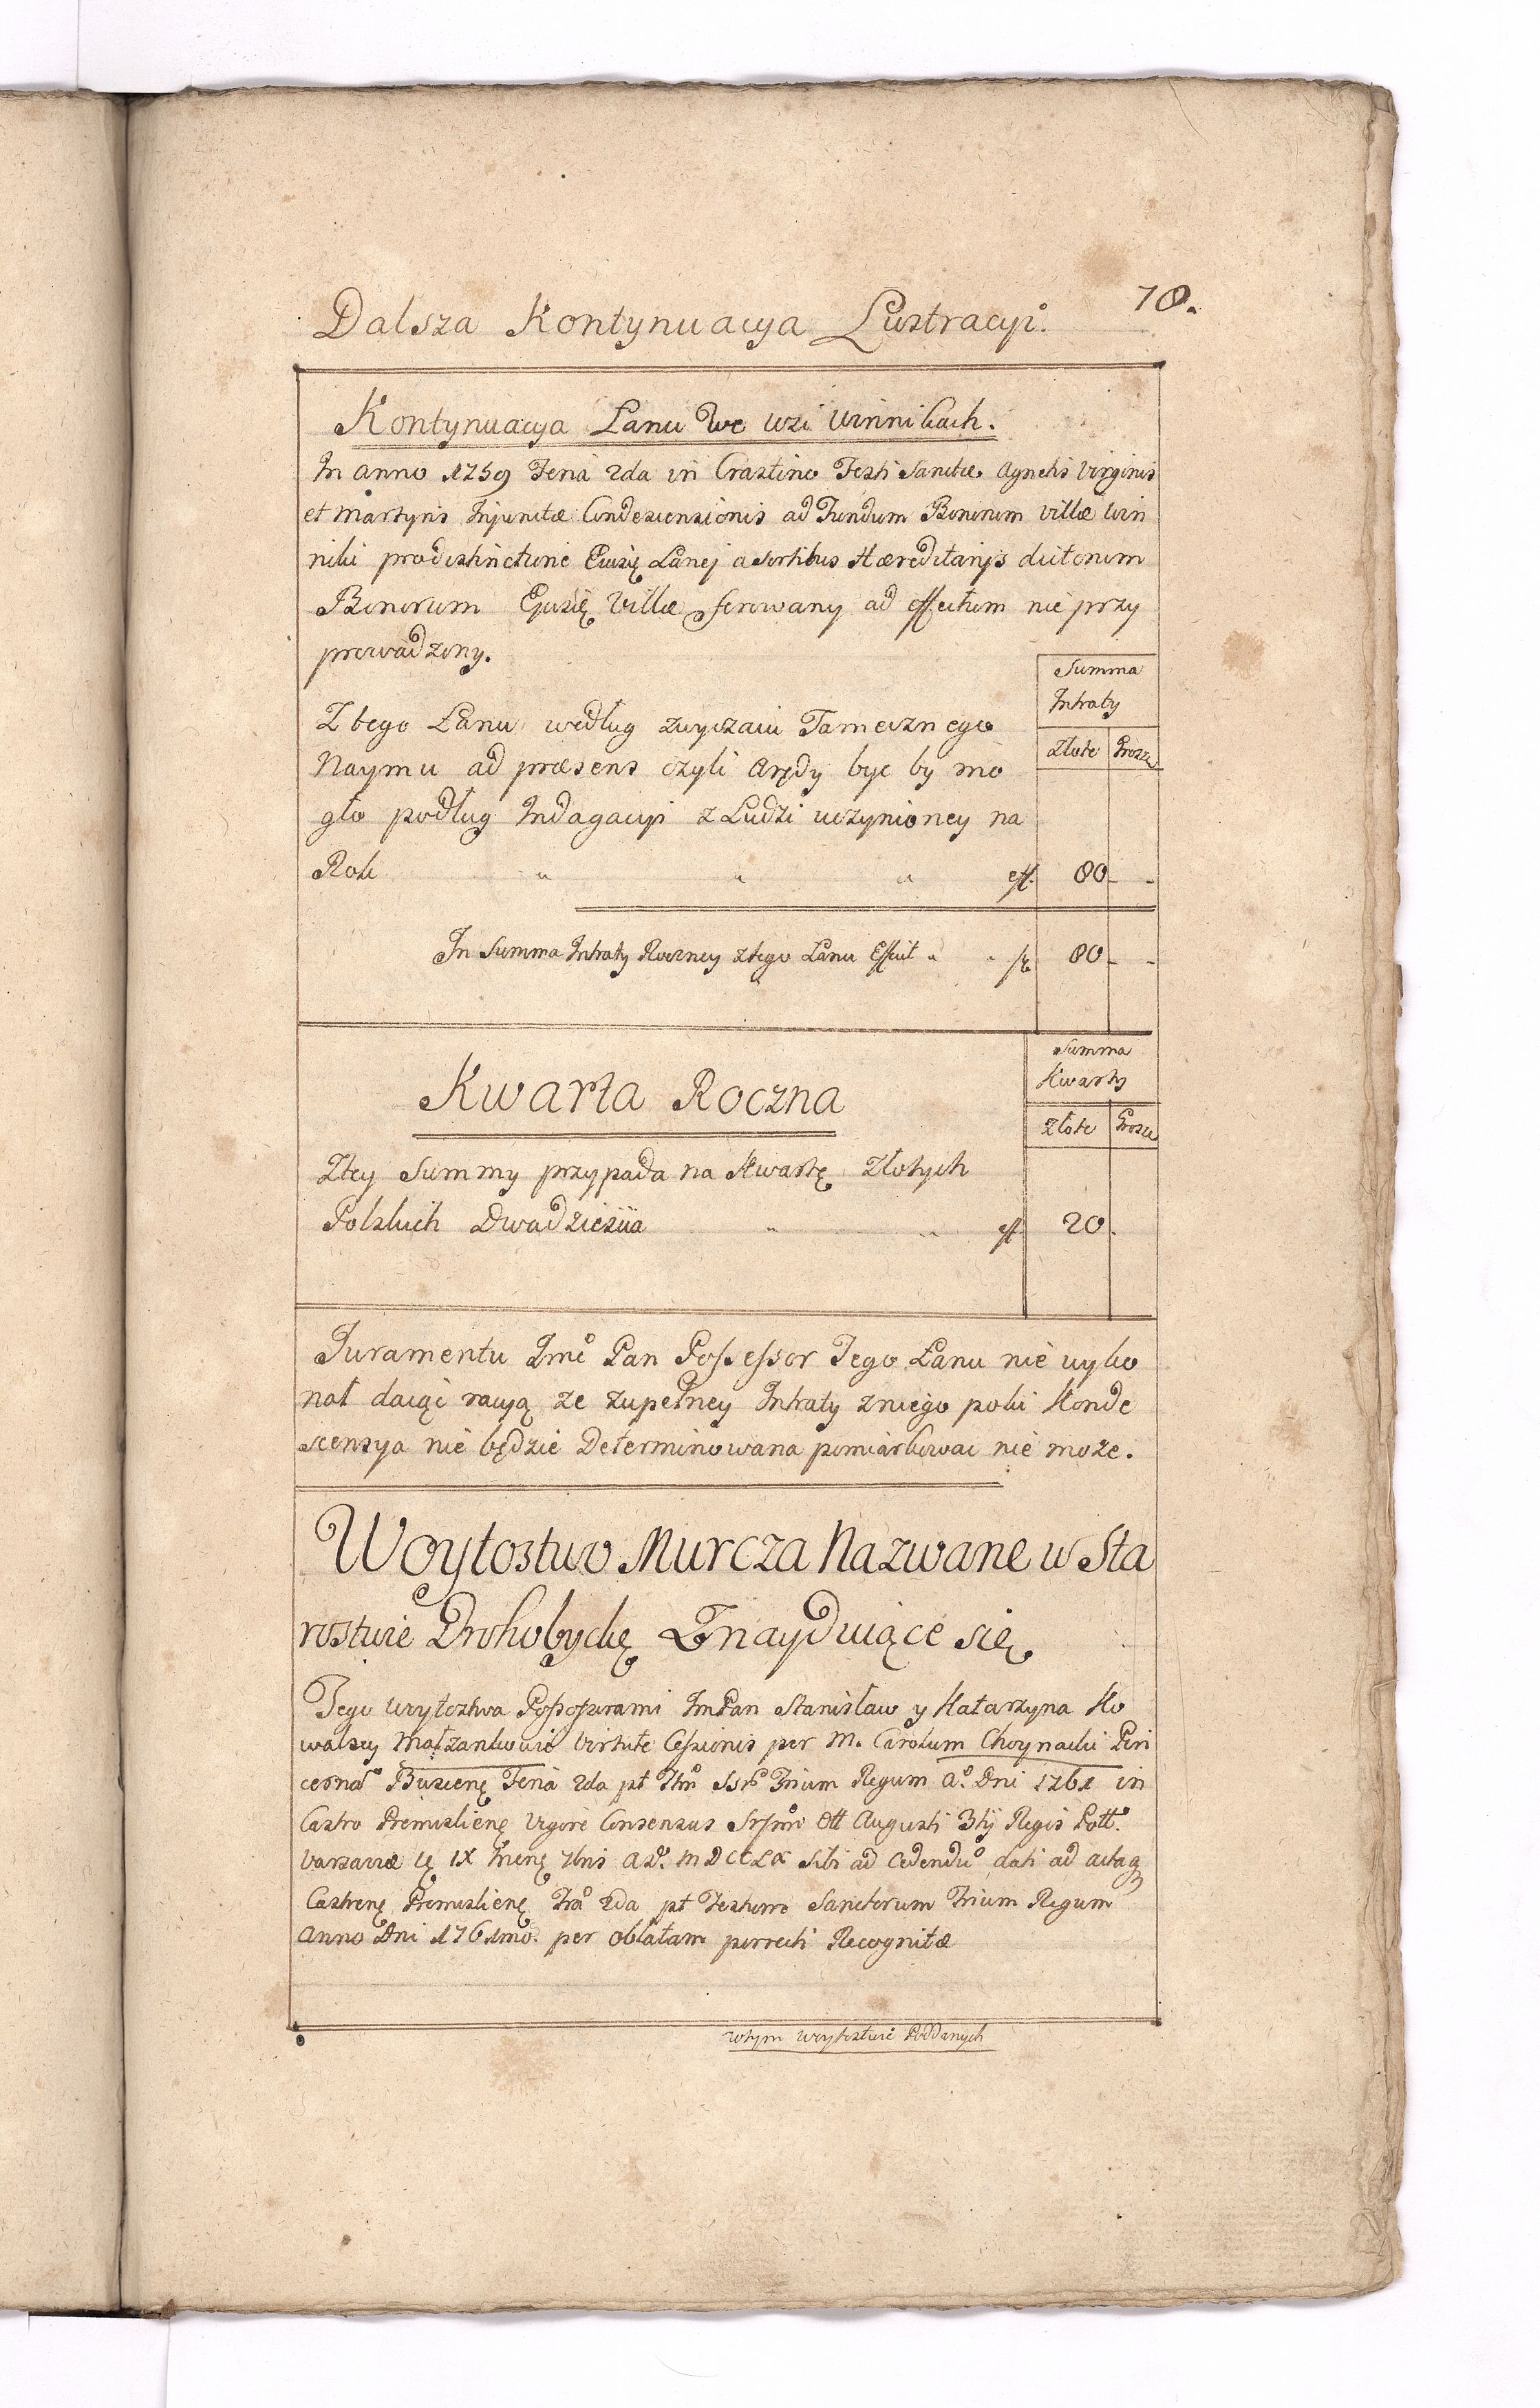 78.
Dalsza Kontynuacya Lustracyi.
Kontynuacya Łanu We wsi Winnikach.
In anno 1759 Feria 2da in Crastino Festi Sanctæ Agnetis Virginis
et Martyris Injunctæ Condescensionis ad Fundum Bonorum Villæ Win
niki pro distinctione Ejusdę Lanej a sortibus Hæreditarijs dictorum
Bonorum Ejusdę Villæ ferowany ad effectum nie przy
prowadzony.
Summa
Intraty
Złote Grosze
Z tego Łanu według zwyczaiu Tamecznego
Naymu ad præsens czyli Arędy byc by mo
gło podług Indagacyi z Ludzi uczynioney na
Rok " " " eff. 80 - -
In Summa Intraty Roczney z tego Łanu Effcit " " 80 - -
Summa
Kwarty
Złote Grosze
Kwarta Roczna
Z tey Summy przypada na Kwartę Złotych
Polskich Dwadziescia " " eff 20.
Juramentu Jmc Pan Possessor Tego Łanu nie wyko
nał daiąc racyą że zupełney Intraty z niego poki Konde
scensya nie będzie Determinowana pomiarkowac nie może.
Woytostwo Murcza Nazwane w Sta
rostwie Drohobyckę Znayduiące się
Tego Woytostwa Possessorami ImPan Stanisław y Katarzyna Ko
walscy Małżankowie Virtute Cessionis per M. Carolum Choynacki Pin
cernã Buscenę Feria 2da pt Ftm Ssrõ Trium Regum Aõ Dni 1761 in
Castro Premislienę Vigore Consensus Srsmi Ott Augusti 3tij Regis Poll.
Varsaviæ IX Menę 7bris A.D. MDCCLX Sibi ad cedendũ dati ad acta q
Castrenę Premislienę Fra 2da pt Festum Sanctorum Trium Regum
Anno Dni 1761mo. per oblatam porrecti Recognitæ
w tym Woytostwie Poddanych